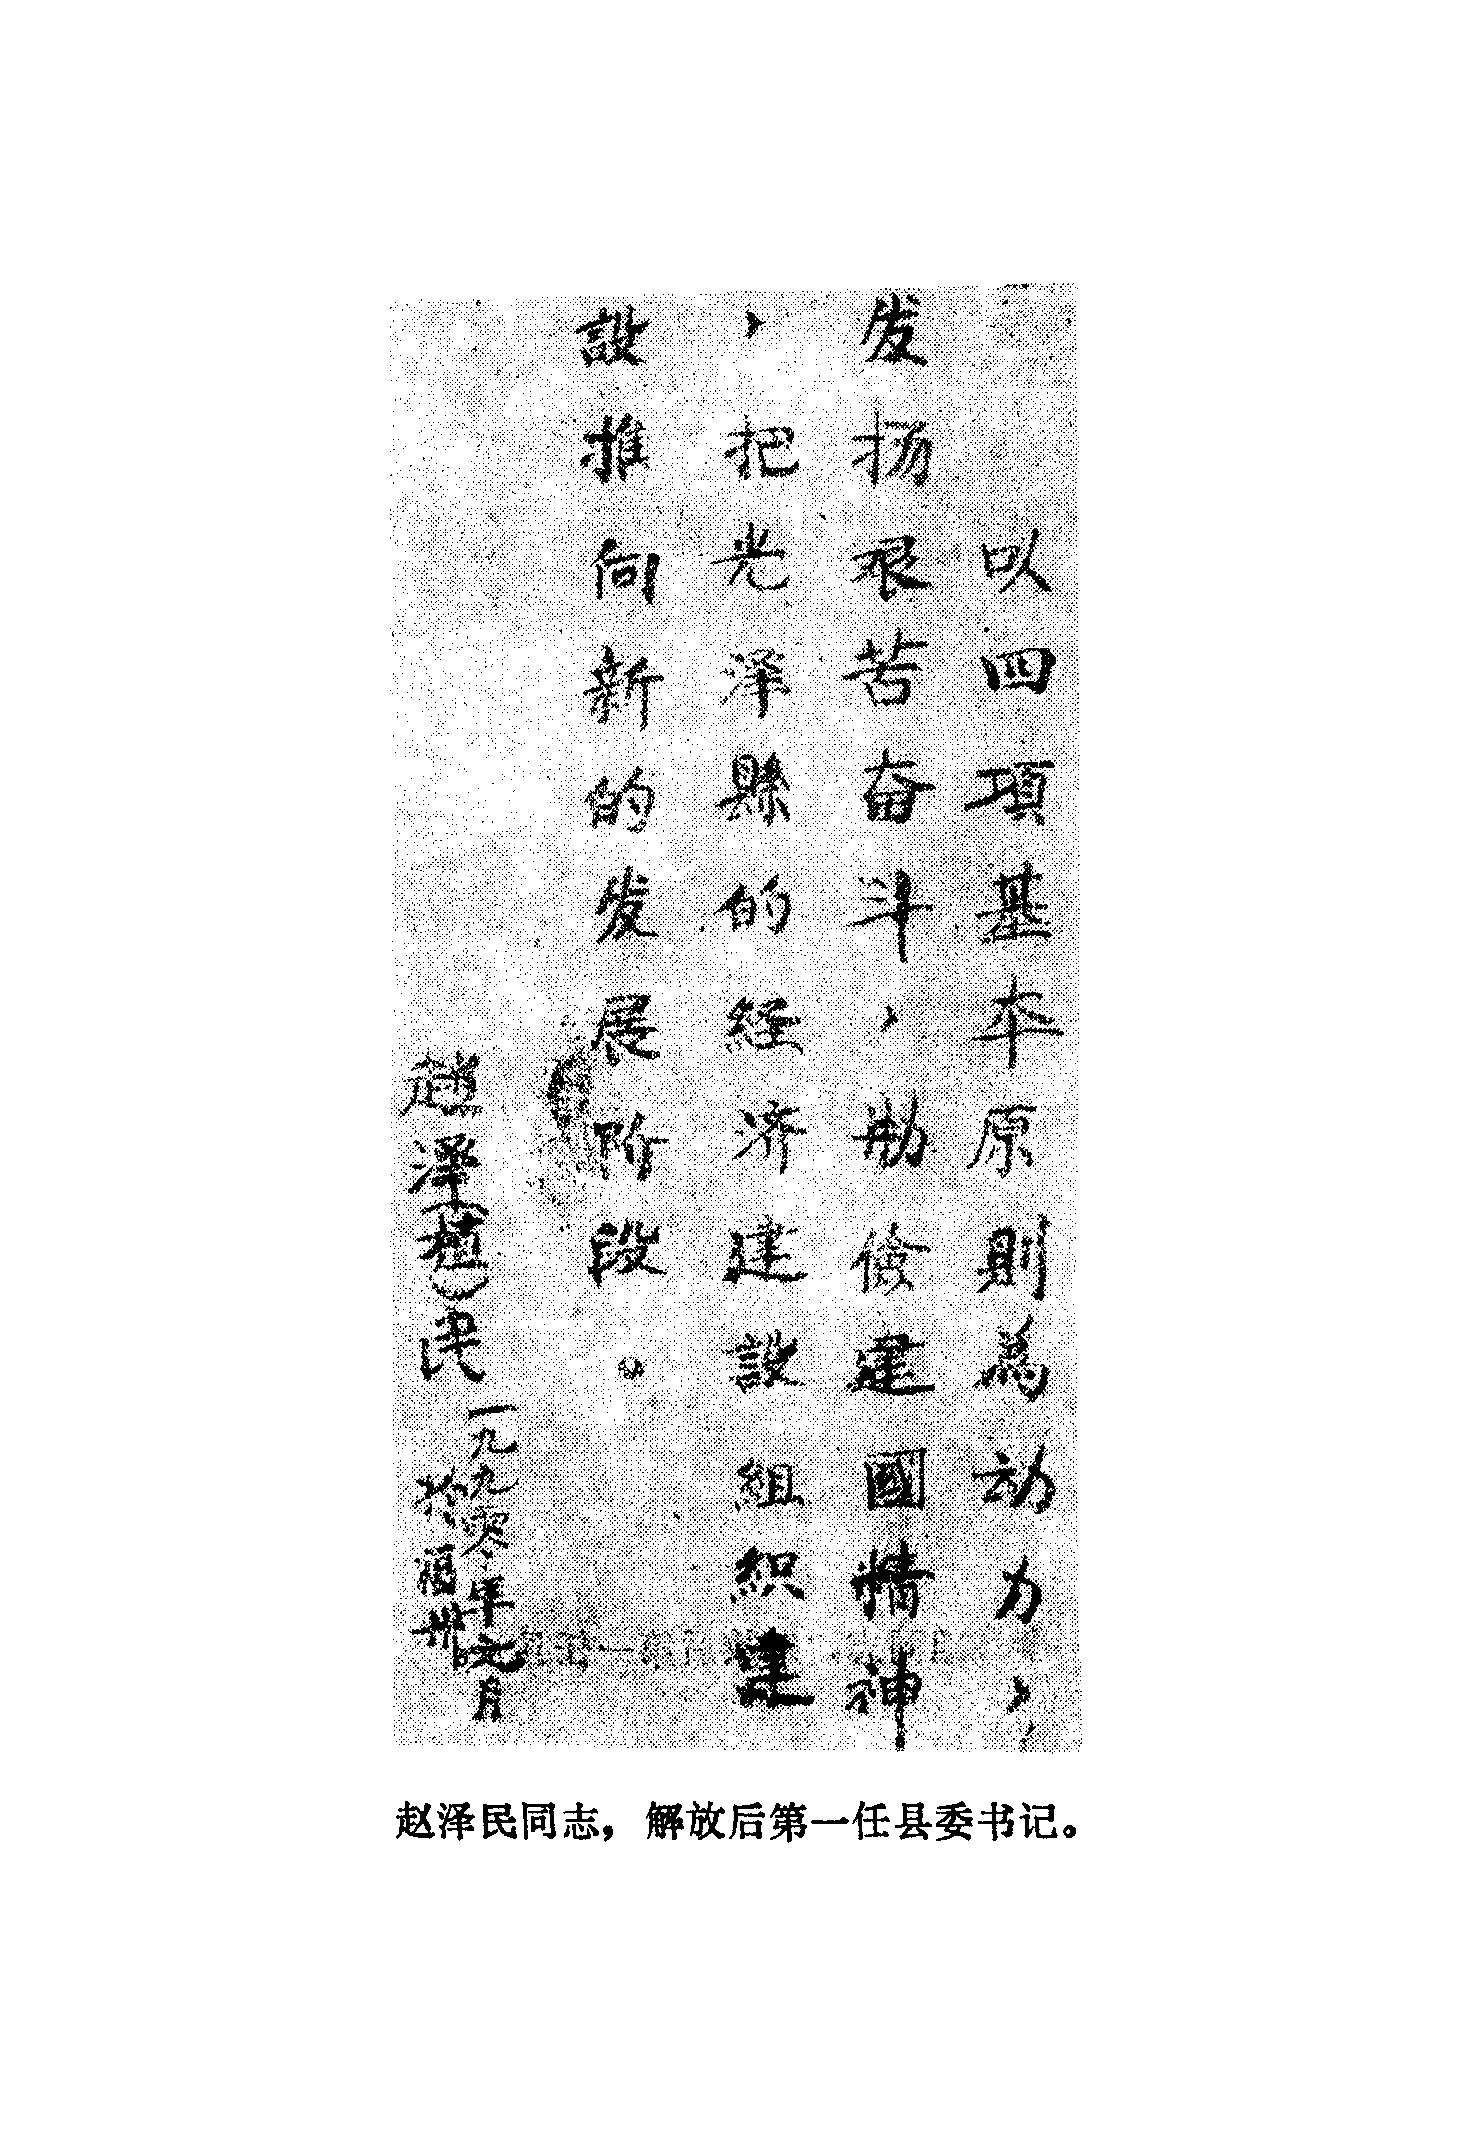 以四項基本原則為动力，
发扬艰苦奋斗，勤儉建國精神
，把光泽縣的经济建設組织建
設推向新的发展阶段。
趙泽（植）民
一九九零年元月
於福州
赵泽民同志，解放后第一任县委书记。